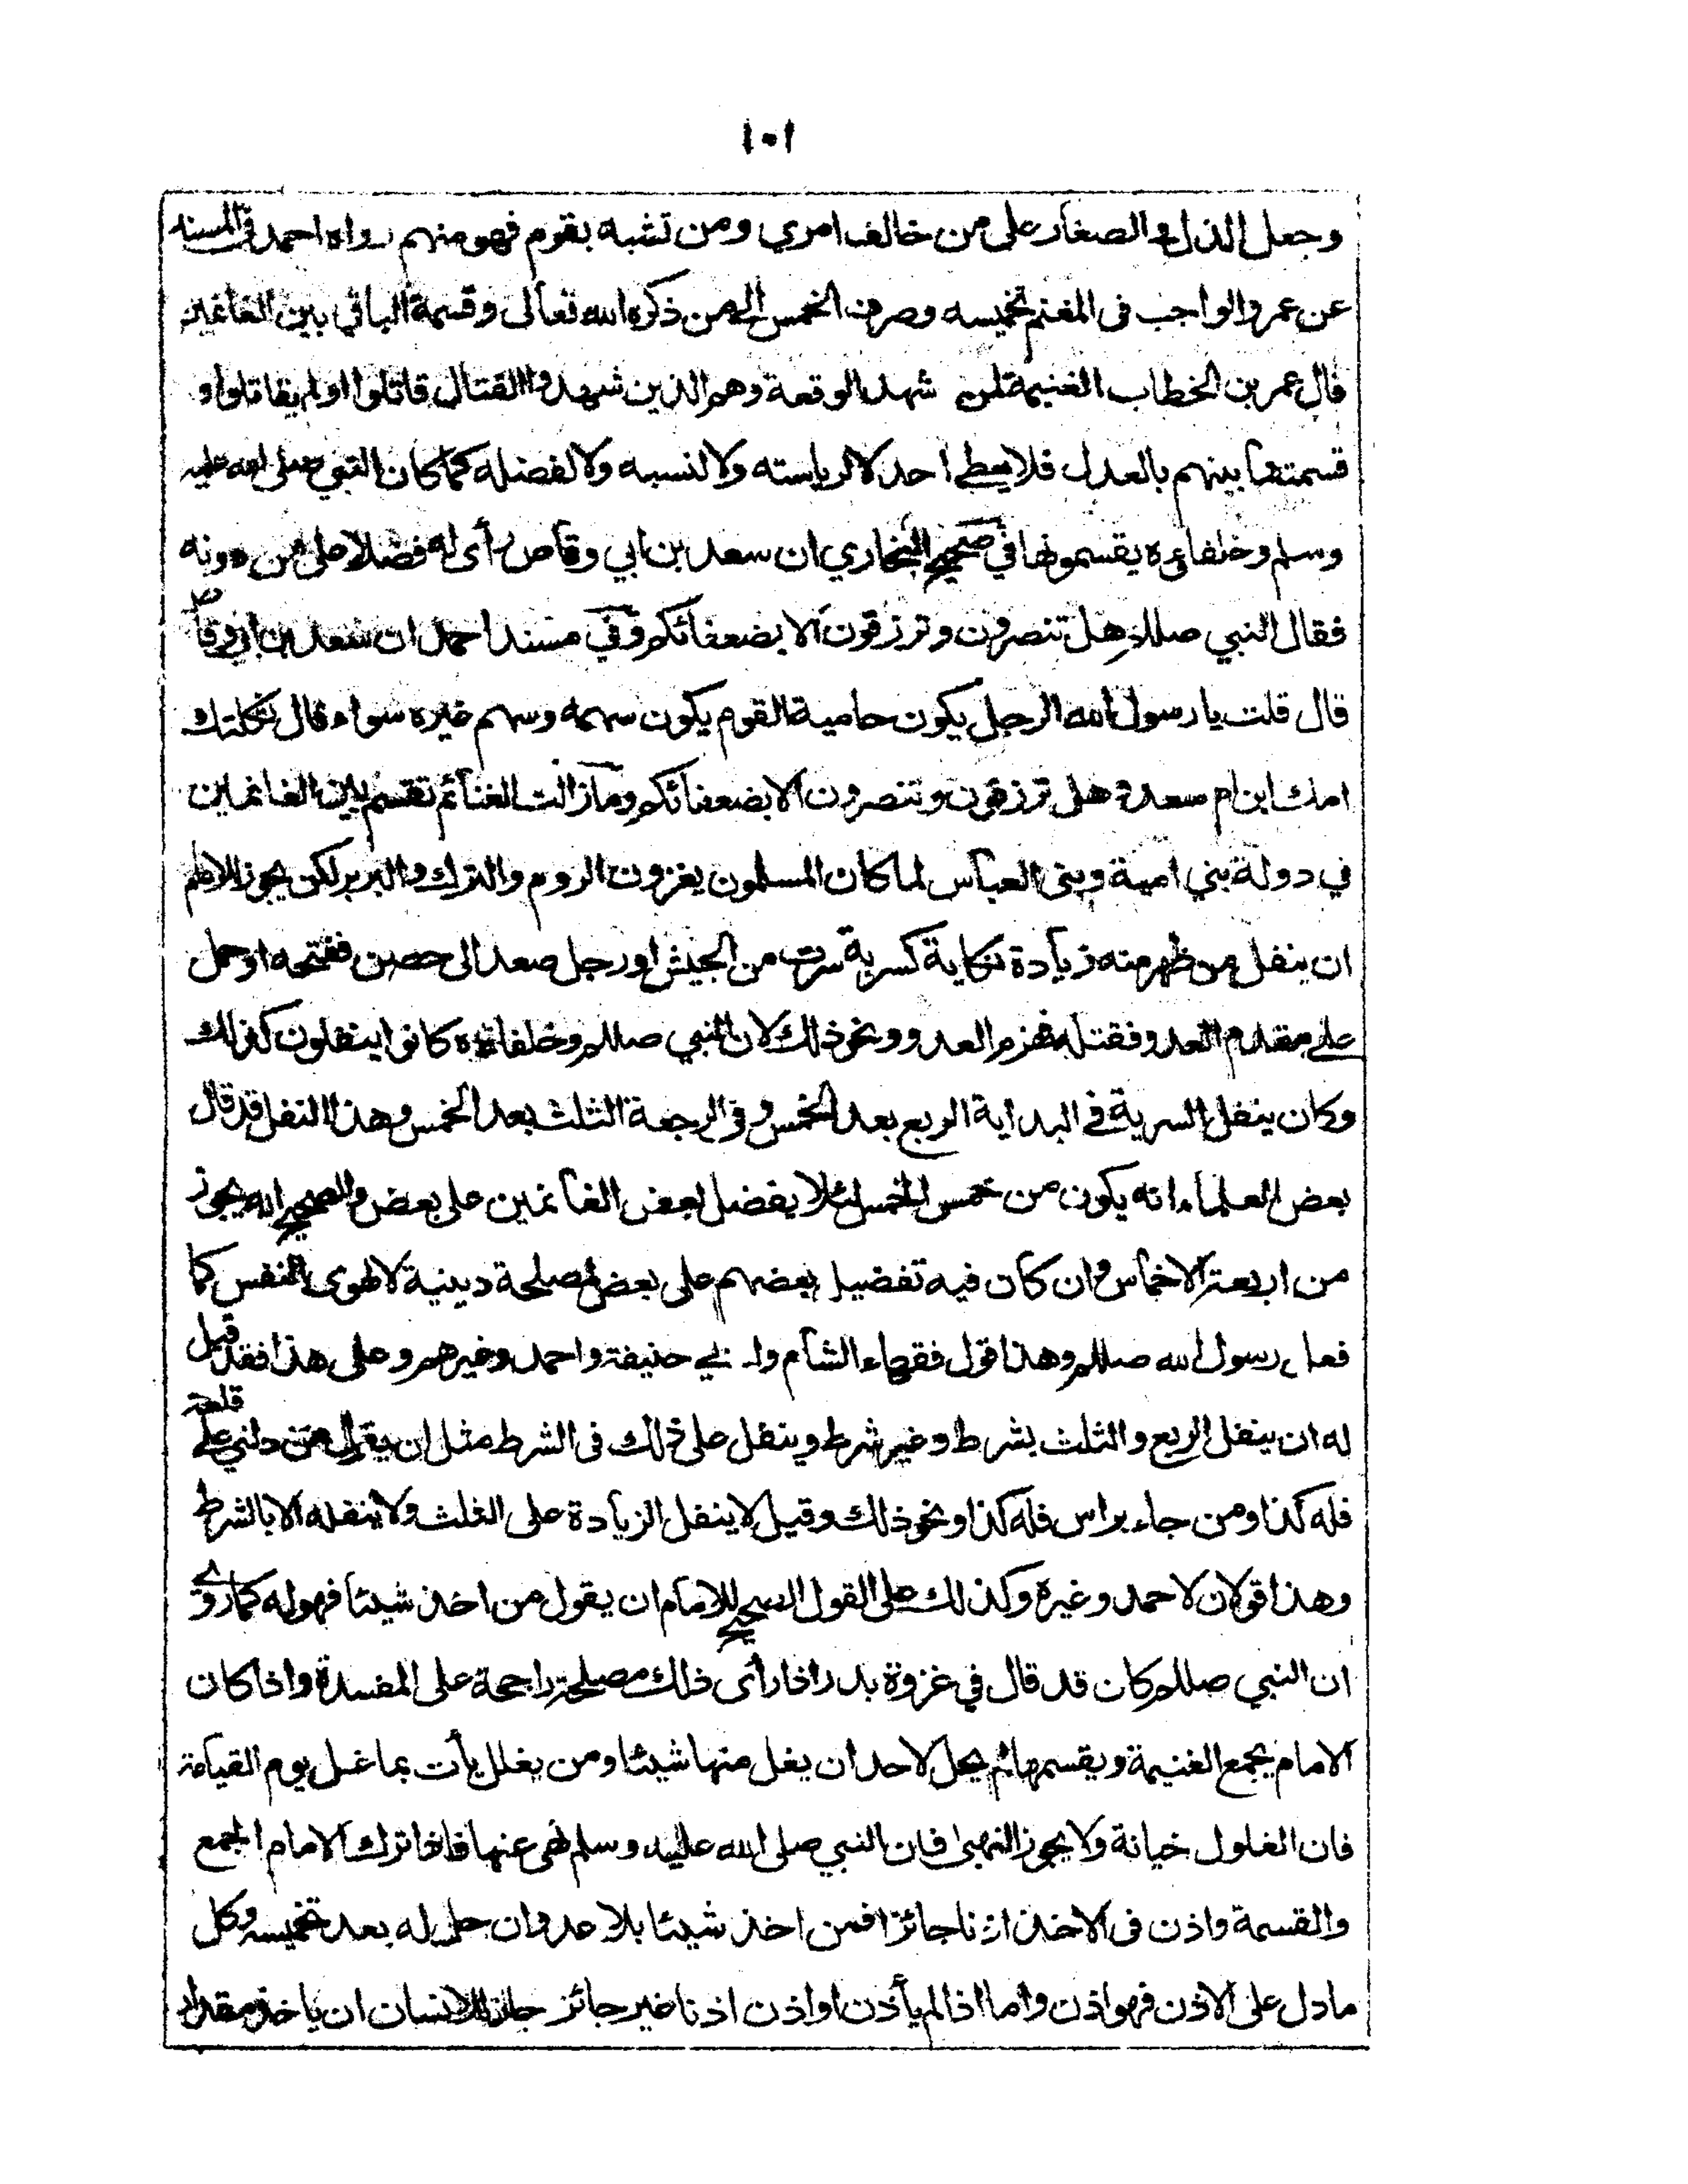 ١٠١
وجعل الذل والصغار على من خالف امري ومن تشبه بقوم فهو منهم رواه احمد في المسند
عن عمر والواجب في المغنم تخميسه وصرف الخمس الى من ذكره الله تعالى وقسمة الباقي بين الغانمين
قال عمر بن الخطاب الغنيمة لمن شهد الوقعة وهم الذين شهدوا القتال قاتلوا او لم يقاتلوا و
قسمتها بينهم بالعدل فلا يعطى احد لا لرياسته ولا لنسبه ولا لفضله كما كان النبي صلى الله عليه
وسلم وخلفاءه يقسمونها في صحيح البخاري ان سعد بن ابي وقاص رأى له فضلا على من دونه
فقال النبي صللم هل تنصرون وترزقون الا بضعفائكم وفي مسند احمد ان سعد بن ابي وقاص
قال قلت يا رسول الله الرجل يكون حامية القوم يكون سهمه وسهم غيره سواء قال ثكلتك
امك ابن ام سعد وهل ترزقون وتنصرون الا بضعفائكم وما زالت الغنائم تقسم بين الغانمين
في دولة بني امية وبني العباس لما كان المسلمون يغزون الروم والترك والبربر لكن يجوز للامام
ان ينفل من ظهر منه زيادة نكاية كسرية سرت من الجيش او رجل صعد الى حصن ففتحه او حمل
على مقدم العدو فقتله فهزم العدو ونحو ذلك لان النبي صللم وخلفاءه كانوا ينفلون كذلك
وكان ينفل السرية في البداية الربع بعد الخمس وفي الرجعة الثلث بعد الخمس وهذا النفل قد قال
بعض العلماء انه يكون من خمس الخمس لئلا يفضل بعض الغانمين على بعض والصحيح انه يجوز
من اربعة الاخماس وان كان فيه تفضيل بعضهم على بعض لمصلحة دينية لا لهوى النفس كما
فعل رسول الله صللم وهذا قول فقهاء الشام وابي حنيفة واحمد وغيرهم وعلى هذا فقد قيل
له ان ينفل الربع والثلث بشرط وغير شرط وينفل على ذلك في الشرط مثل ان يقول من دلني على قلعة
فله كذا ومن جاء براس فله كذا ونحو ذلك وقيل لا ينفل الزيادة على الثلث ولا ينفله الا بالشرط
وهذا قولان لاحمد وغيره وكذلك على القول الصحيح للامام ان يقول من اخذ شيئا فهو له كما روي
ان النبي صللم كان قد قال في غزوة بدر اذا رأى ذلك مصلحة راجحة على المفسدة واذا كان
الامام يجمع الغنيمة ويقسمها لم يحل لاحد ان يغل منها شيئا ومن يغلل يأت بما غل يوم القيامة
فان الغلول خيانة ولا يجوز النهبى فان النبي صلى الله عليه وسلم نهى عنها فاذا ترك الامام الجمع
والقسمة واذن في الاخذ اذنا جائزا فمن اخذ شيئا بلا عدوان حل له بعد تخميسه وكل
ما دل على الاذن فهو اذن واما اذا لم يأذن او اذن اذنا غير جائز جاز للانسان ان ياخذ مقدار